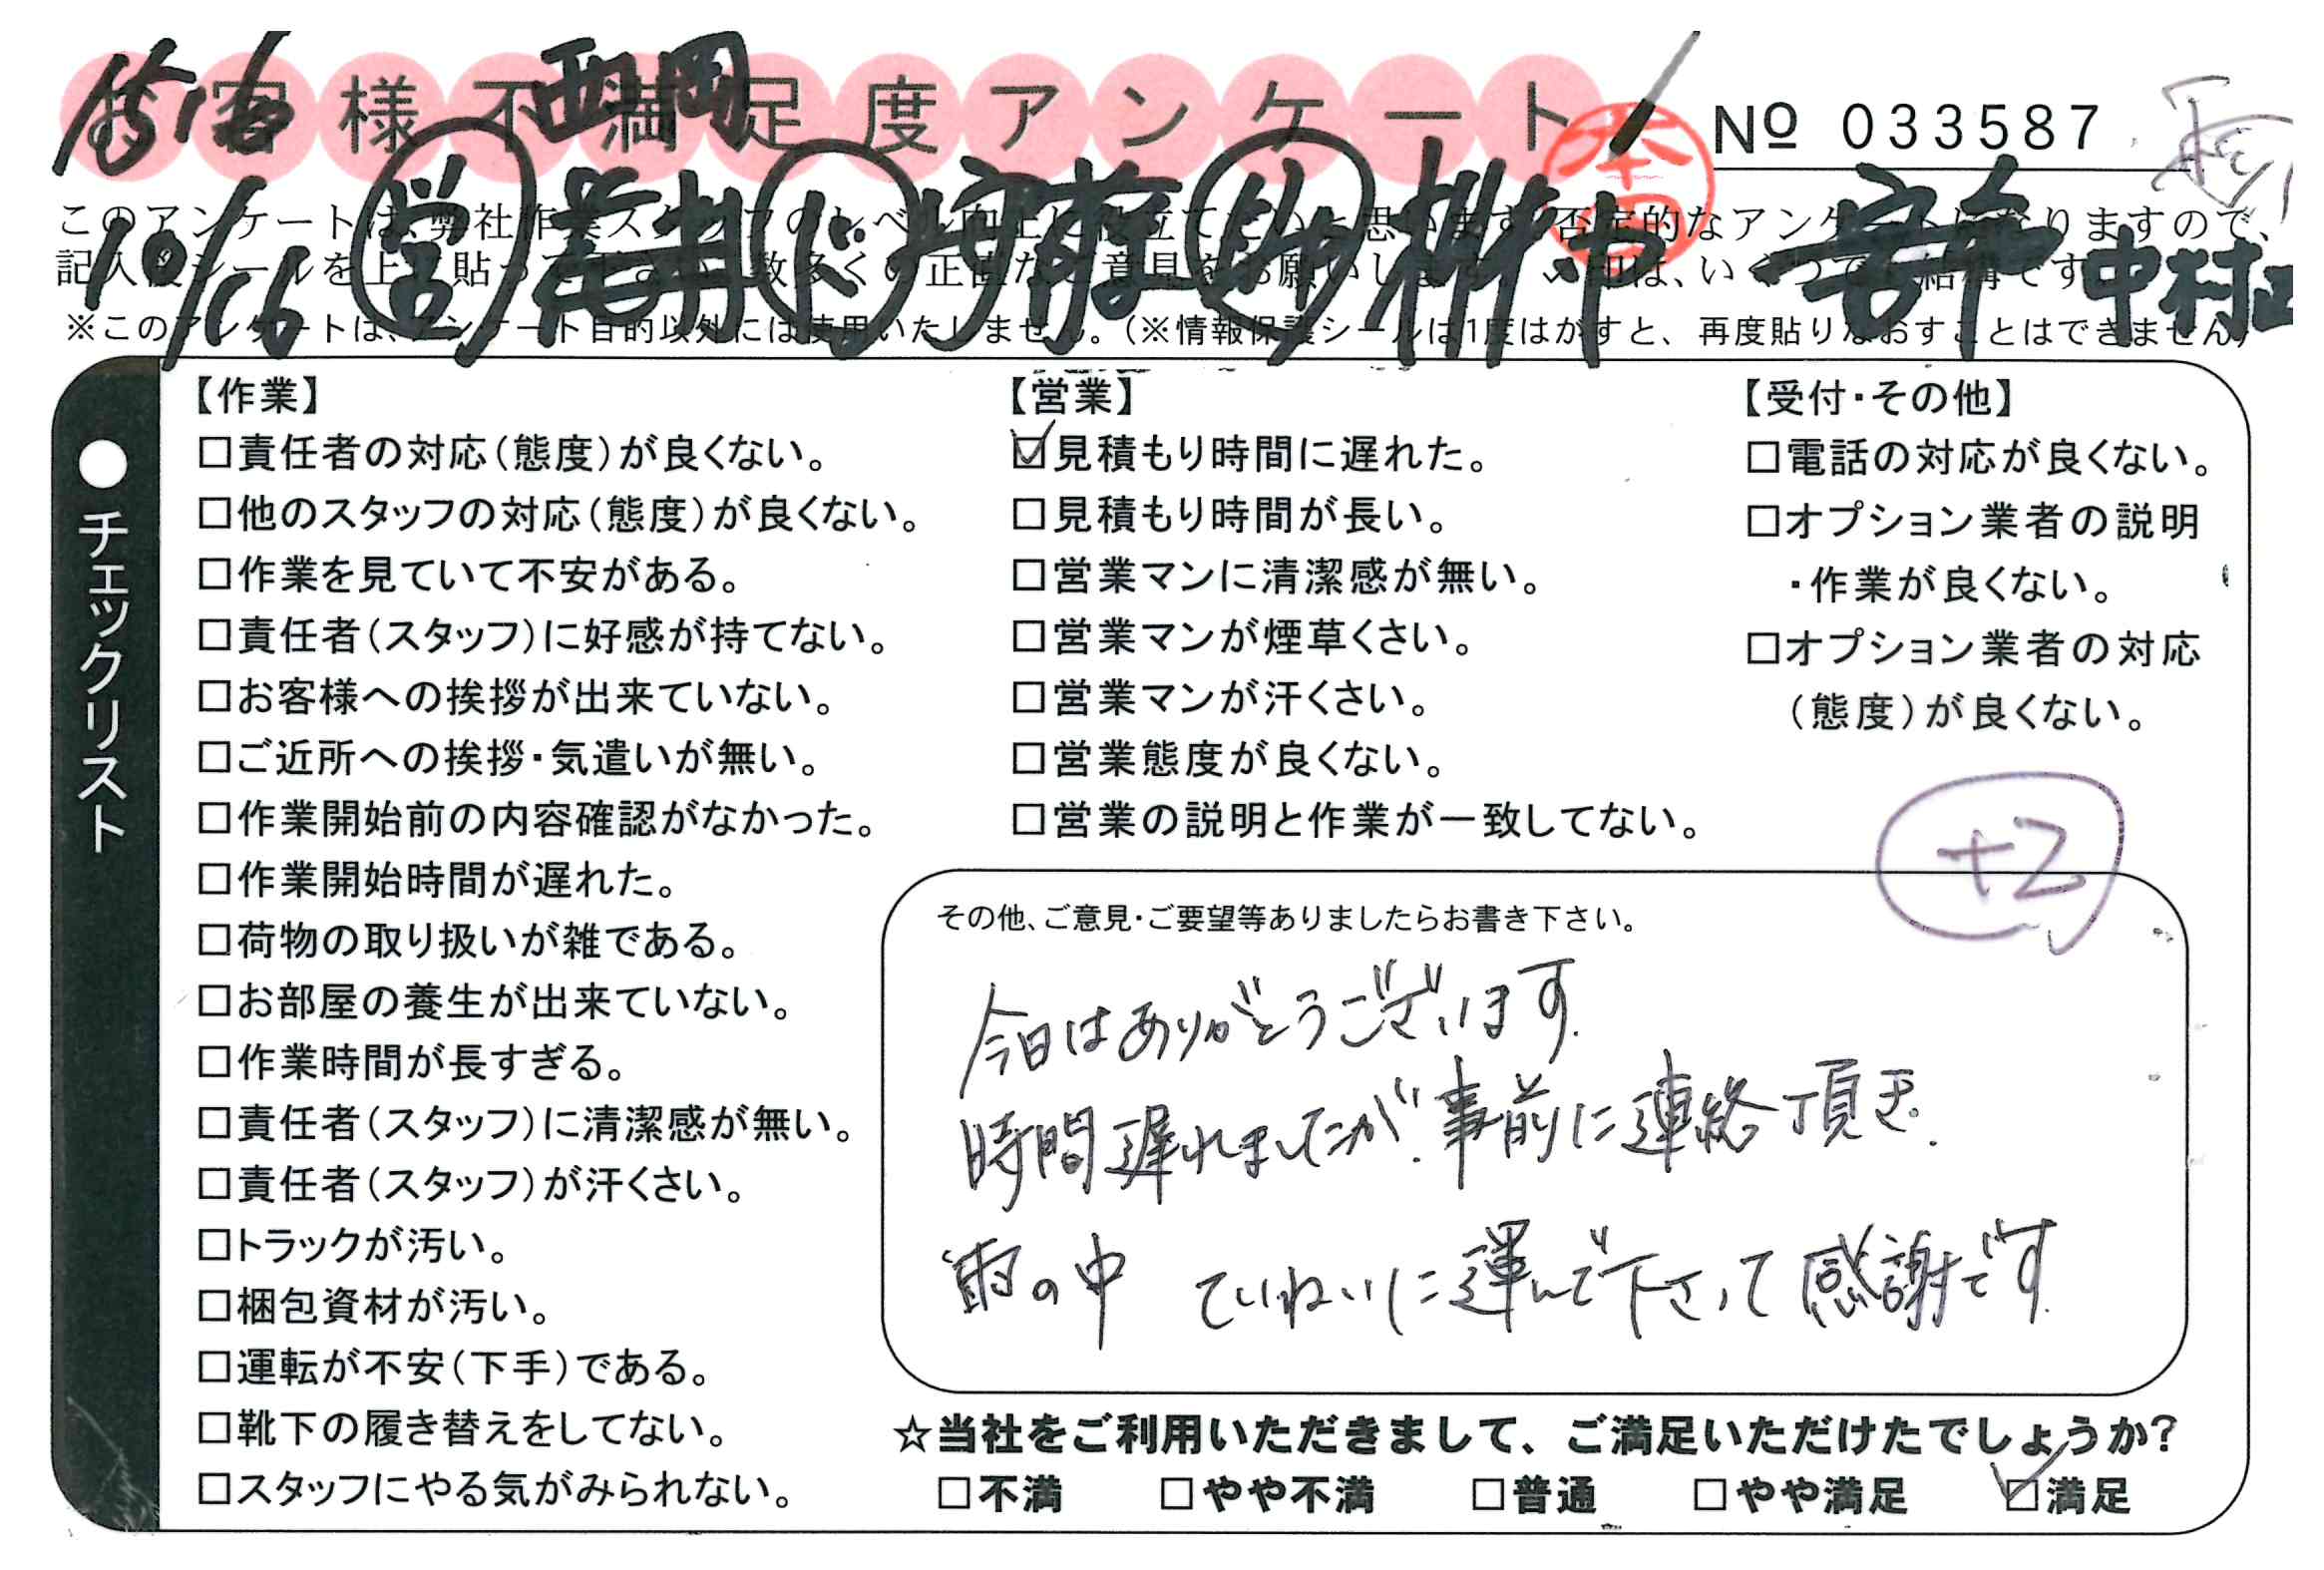 お客様不満足度アンケート
西岡
本
№ 033587
10/16 営 ド 中村
このアンケートは、弊社作業スタッフのレベル向上に役立てたいと思います。否定的なアンケートになりますので、
記入後シールを上に貼って下さい。数多くの正直なご意見をお願いします。 レ印は、いくつでも結構です。
※このアンケートは、アンケート目的以外には使用いたしません。(※情報保護シールは1度はがすと、再度貼りなおすことはできません)
●チェックリスト
【作業】
□責任者の対応(態度)が良くない。
□他のスタッフの対応(態度)が良くない。
□作業を見ていて不安がある。
□責任者(スタッフ)に好感が持てない。
□お客様への挨拶が出来ていない。
□ご近所への挨拶・気遣いが無い。
□作業開始前の内容確認がなかった。
□作業開始時間が遅れた。
□荷物の取り扱いが雑である。
□お部屋の養生が出来ていない。
□作業時間が長すぎる。
□責任者(スタッフ)に清潔感が無い。
□責任者(スタッフ)が汗くさい。
□トラックが汚い。
□梱包資材が汚い。
□運転が不安(下手)である。
□靴下の履き替えをしてない。
□スタッフにやる気がみられない。
【営業】
☑見積もり時間に遅れた。
□見積もり時間が長い。
□営業マンに清潔感が無い。
□営業マンが煙草くさい。
□営業マンが汗くさい。
□営業態度が良くない。
□営業の説明と作業が一致してない。
【受付・その他】
□電話の対応が良くない。
□オプション業者の説明
・作業が良くない。
□オプション業者の対応
(態度)が良くない。
+2
その他、ご意見・ご要望等ありましたらお書き下さい。
今日はありがとうございます.
時間遅れましたが.事前に連絡頂き.
雨の中 ていねいに運んで下さって感謝です.
☆当社をご利用いただきまして、ご満足いただけたでしょうか?
□不満 □やや不満 □普通 □やや満足 ☑満足